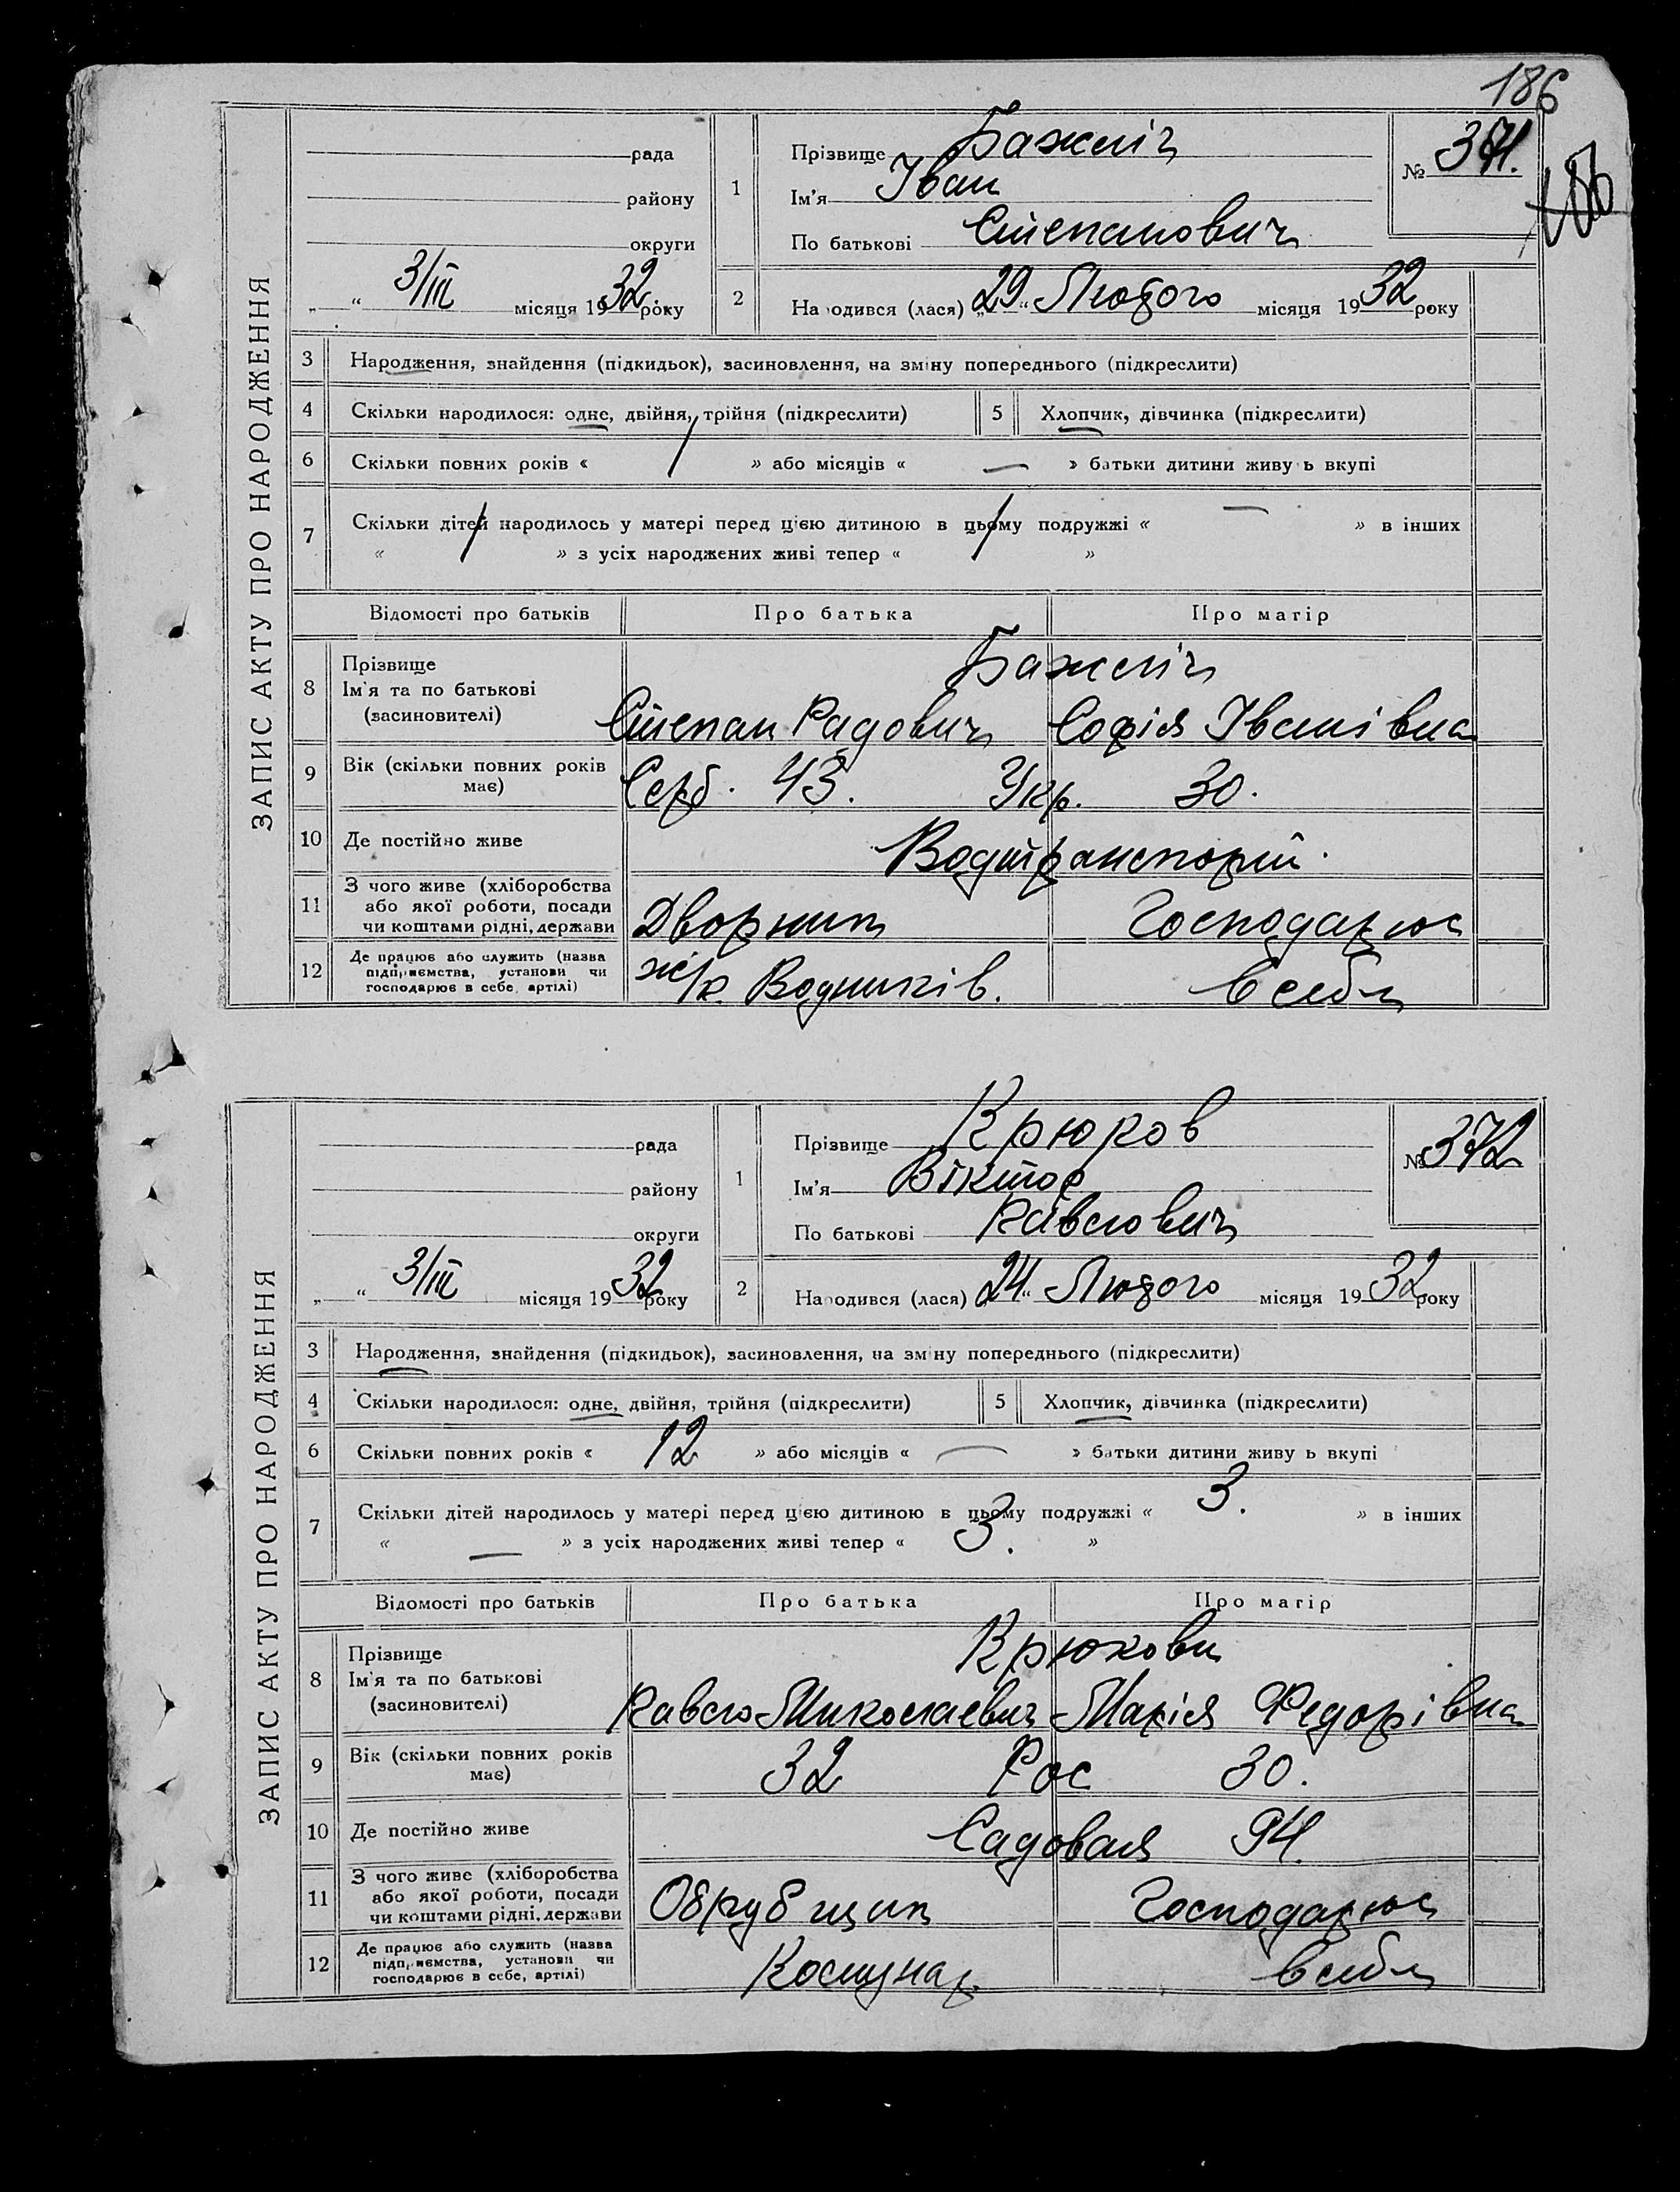 186
ЗАПИС АКТУ ПРО НАРОДЖЕННЯ
рада
району
округи
„ “ 3/III місяця 1932 року
1
Прізвище Бажліч
Ім'я Іван
По батькові Степанович
№ 371.
2
Народився (лася) „29“ Лютого місяця 1932 року
3 Народження, знайдення (підкидьок), засиновлення, на зміну попереднього (підкреслити)
4 Скільки народилося: одне, двійня, трійня (підкреслити)
5 Хлопчик, дівчинка (підкреслити)
6 Скільки повних років « 1 » або місяців « — » батьки дитини живуть вкупі
7 Скільки дітей народилось у матері перед цією дитиною в цьому подружжі « — » в інших
« 1 » з усіх народжених живі тепер « 1 »
Відомості про батьків Про батька Про матір
8 Прізвище
Ім'я та по батькові
(засиновителі)
Бажліч
Степан Радович Софія Іванівна
9 Вік (скільки повних років
має)
Серб. 43. Укр. 30.
10 Де постійно живе Водтранспорт.
11 З чого живе (хліборобства
або якої роботи, посади
чи коштами рідні, держави
Дворник Господарює
12 Де працює або служить (назва
підприємства, установи чи
господарює в себе, артілі)
ж/к. Водників. в себе
ЗАПИС АКТУ ПРО НАРОДЖЕННЯ
рада
району
округи
„ “ 3/III місяця 1932 року
1
Прізвище Крюков
Ім'я Віктор
По батькові Павлович
№ 372
2
Народився (лася) „24“ Лютого місяця 1932 року
3 Народження, знайдення (підкидьок), засиновлення, на зміну попереднього (підкреслити)
4 Скільки народилося: одне, двійня, трійня (підкреслити)
5 Хлопчик, дівчинка (підкреслити)
6 Скільки повних років « 12 » або місяців « — » батьки дитини живуть вкупі
7 Скільки дітей народилось у матері перед цією дитиною в цьому подружжі « 3. » в інших
« — » з усіх народжених живі тепер « 3. »
Відомості про батьків Про батька Про матір
8 Прізвище
Ім'я та по батькові
(засиновителі)
Крюкови
Павло Миколаевич Марія Федорівна
9 Вік (скільки повних років
має)
32 Рос 30.
10 Де постійно живе Садовая 94.
11 З чого живе (хліборобства
або якої роботи, посади
чи коштами рідні, держави
Обрубщик Господарює
12 Де працює або служить (назва
підприємства, установи чи
господарює в себе, артілі)
Комунар. в себе